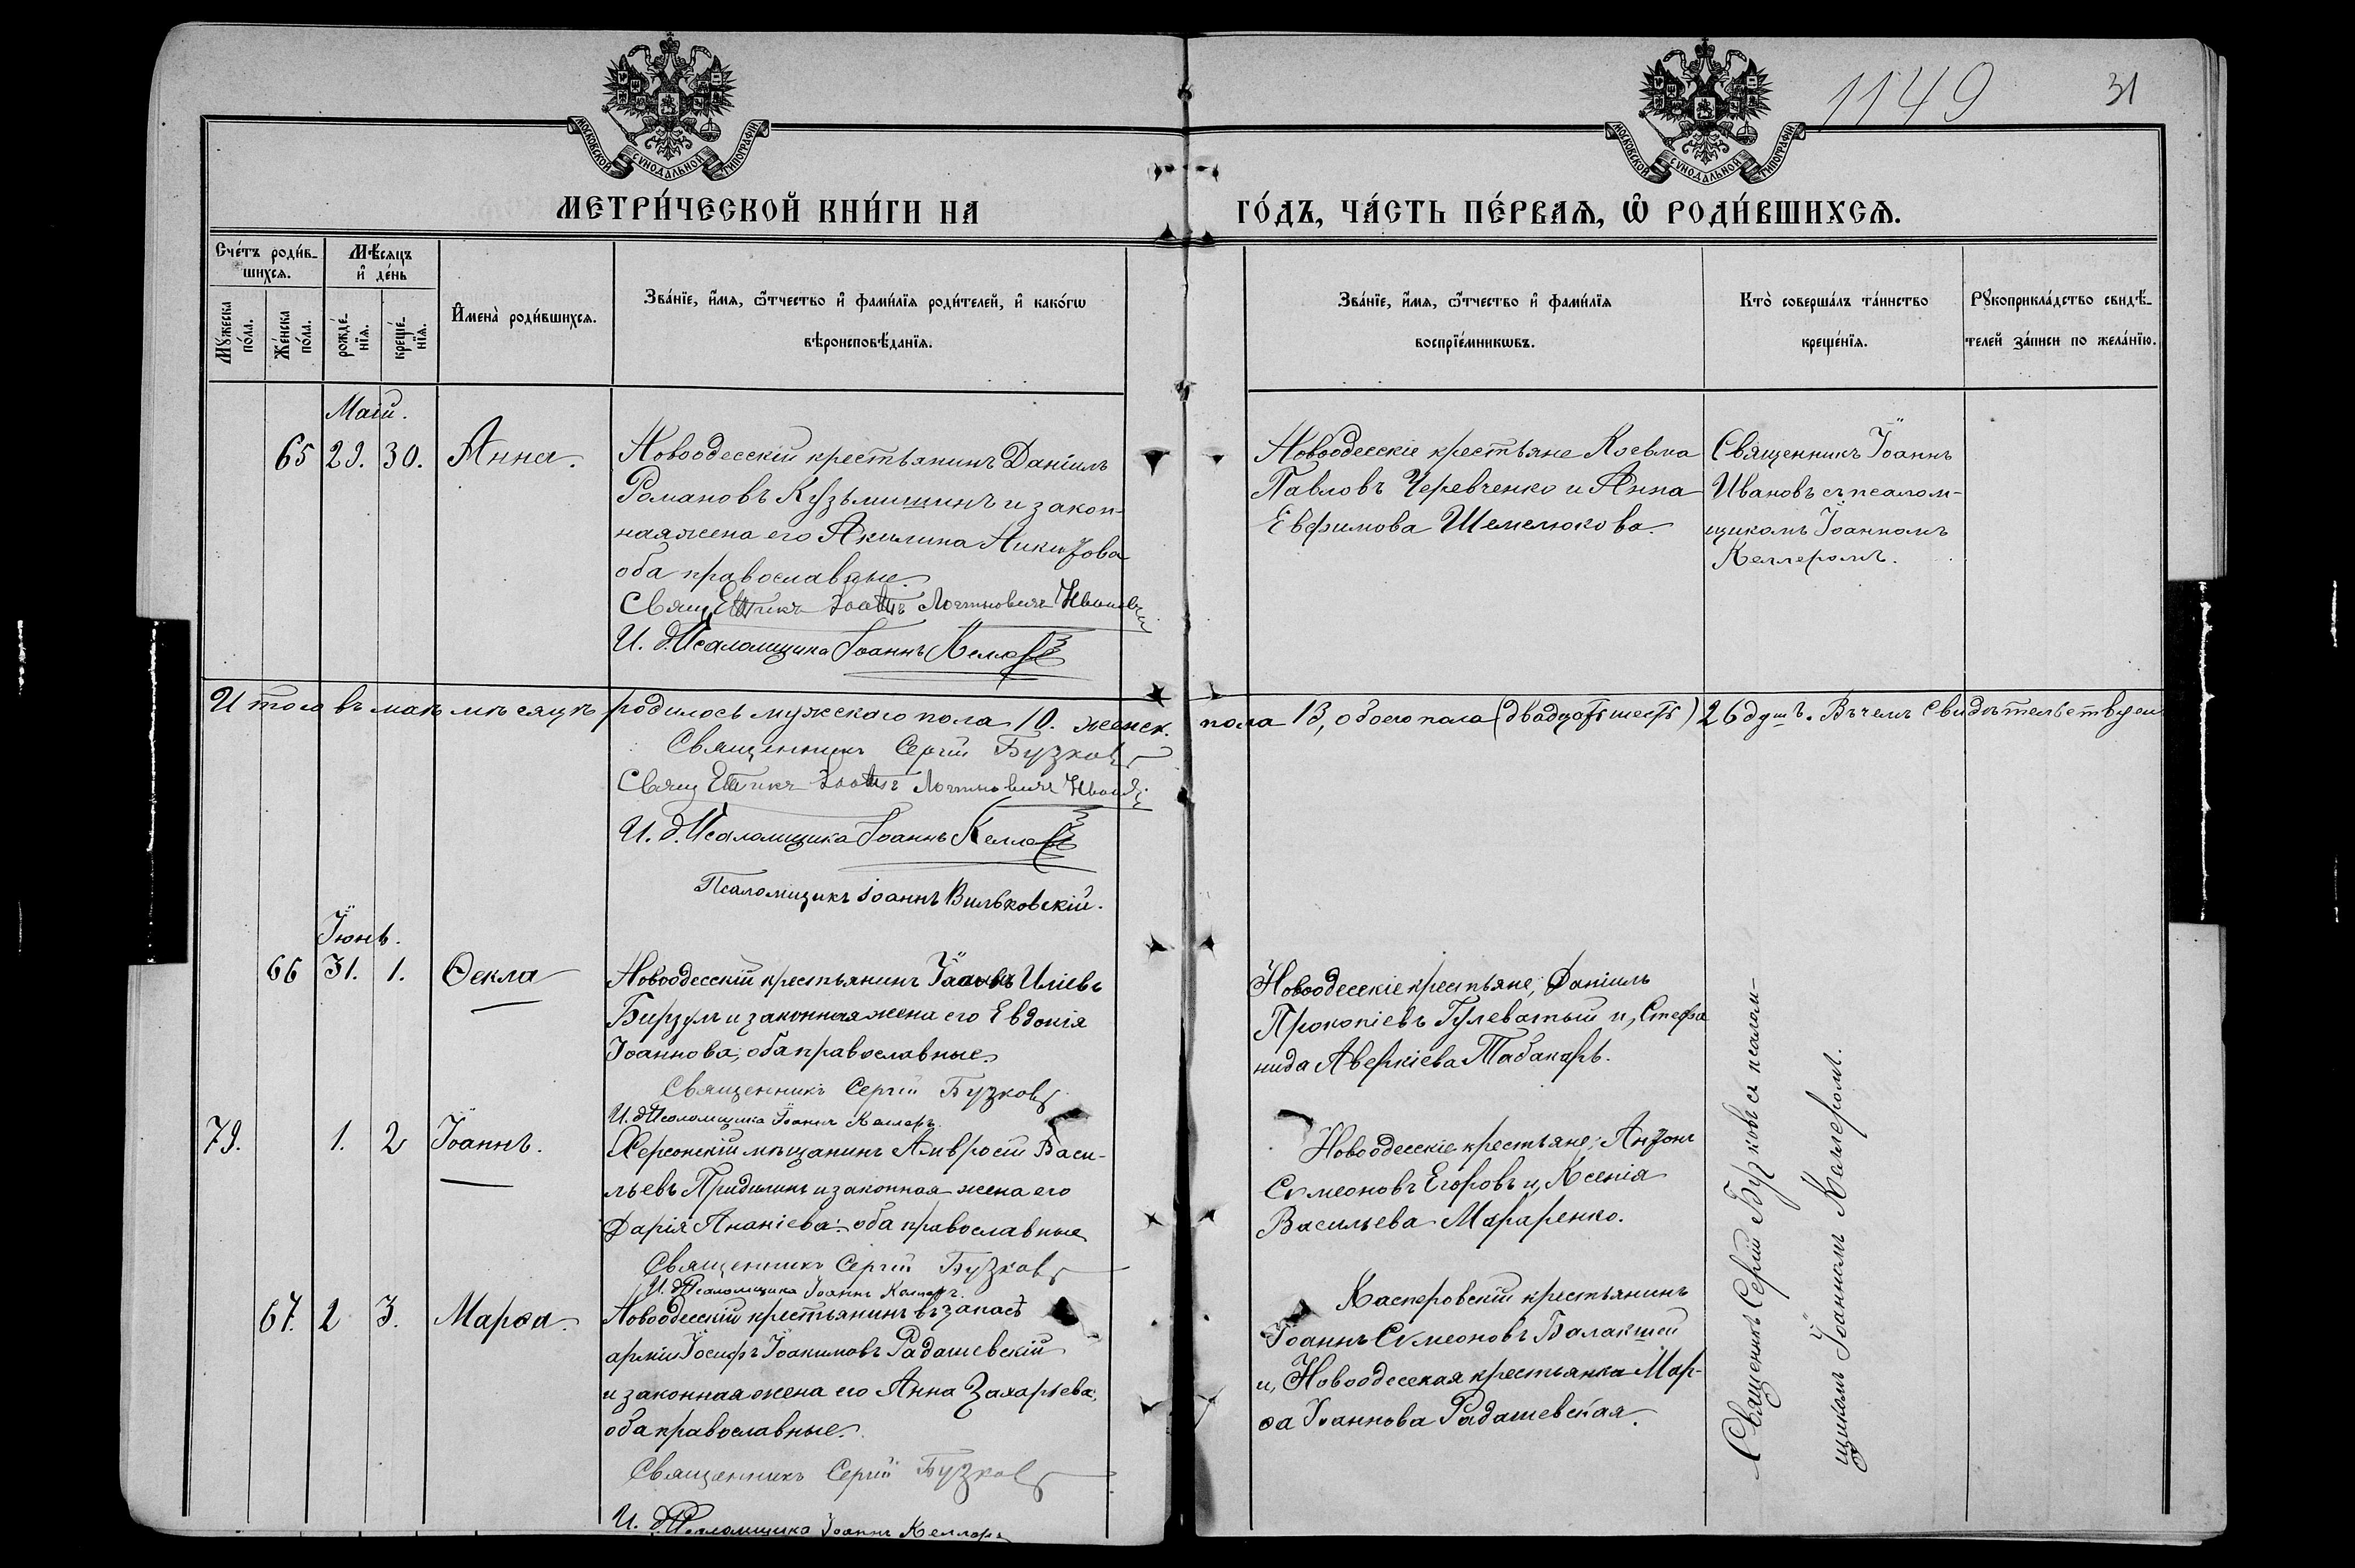 1149
31
МОСКОВСКОЙ СѴНОДАЛЬНОЙ ТИПОГРАФІИ
МОСКОВСКОЙ СѴНОДАЛЬНОЙ ТИПОГРАФІИ
МЕТРИ́ЧЕСКОЙ КНИ́ГИ НА ГО́ДЪ, ЧА́СТЬ ПЕ́РВАѦ, Ѽ РОДИ́ВШИХСѦ.
Сче́тъ роди́в-
шихсѧ.
Мꙋ́жеска
по́ла.
Же́нска
по́ла.
Мѣ́сѧцъ
и҆ де́нь
рожде́-
нїѧ.
креще́-
нїѧ.
И҆мена̀ роди́вшихсѧ.
Зва́нїе, и҆́мѧ, ѻ҆́тчество и҆ фами́лїѧ роди́телей, и҆ како́гѡ
вѣроисповѣ́данїѧ.
Зва́нїе, и҆́мѧ, ѻ҆́тчество и҆ фами́лїѧ
воспрїе́мникѡвъ.
Кто̀ соверша́лъ та́инство
креще́нїѧ.
Рꙋкоприкла́дство свидѣ́-
телей за́писи по жела́нію.
Маій.
65 29. 30. Анна.
Новоодесскій крестьянинъ Даніилъ
Романовъ Кузьмишинъ и закон-
ная жена его Акилина Никитова
оба православные.
Священникъ Іоаннъ Логиновичъ Ивановъ
И. д. Псаломщика Іоаннъ Келлеръ
Новоодесскіе крестьяне Косьма
Павловъ Черевченко и Анна
Евфимова Шемелюкова.
Священникъ Іоаннъ
Ивановъ съ псалом-
щикомъ Іоанномъ
Келлеромъ.
Итого въ маѣ мѣсяцѣ родилось мужскаго пола 10. женск. пола 13, обоего пола (двадцать шесть) 26 душъ. Въ чемъ свидѣтельствуемъ
Священникъ Сергій Бузковъ
Священникъ Іоаннъ Логиновичъ Ивановъ
И. д. Псаломщика Іоаннъ Келлеръ
Псаломщикъ Іоаннъ Вильковскій.
Іюнь.
66 31. 1. Ѳекла
Новоодесскій крестьянинъ Іаковъ Иліевъ
Бирзулъ и законная жена его Евдокія
Іоаннова, оба православные.
Священникъ Сергій Бузковъ
И. д. Псаломщика Іоаннъ Келлеръ.
Новоодесскіе крестьяне, Даніилъ
Прокопіевъ Гулеватый и, Стефа
нида Аверкіева Табакарь.
79. 1. 2 Іоаннъ.
Херсонскій мѣщанинъ Амвросій Васи-
льевъ Придилинъ и законная жена его
Дарія Ананіева: оба православные
Священникъ Сергій Бузковъ
И. д. Псаломщика Іоаннъ Келлеръ.
Новоодесскіе крестьяне; Антонъ
Сѵмеоновъ Егоровъ и, Ксенія
Васильева Мараренко.
67. 2 3. Марѳа.
Новоодесскій крестьянинъ въ запасѣ
арміи Іосифъ Іоакимовъ Радашевскій
и законная жена его Анна Захарьева,
оба православные.
Священникъ Сергій Бузковъ
И. д. Псаломщика Іоаннъ Келлеръ
Касперовскій крестьянинъ
Іоаннъ Сѵмеоновъ Балакшей
и, Новоодесская крестьянка Мар-
ѳа Іоаннова Радашевская.
Священникъ Сергій Бузковъ съ псалом-
щикомъ Іоанномъ Келлеромъ.